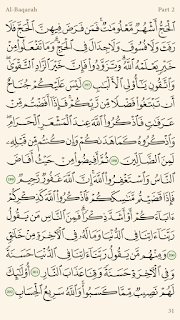 Al-Baqarah Part 2
ٱلۡحَجُّ أَشۡهُرٞ مَّعۡلُومَٰتٞۚ فَمَن فَرَضَ فِيهِنَّ ٱلۡحَجَّ فَلَا
رَفَثَ وَلَا فُسُوقَ وَلَا جِدَالَ فِي ٱلۡحَجِّۗ وَمَا تَفۡعَلُواْ مِنۡ
خَيۡرٖ يَعۡلَمۡهُ ٱللَّهُۗ وَتَزَوَّدُواْ فَإِنَّ خَيۡرَ ٱلزَّادِ ٱلتَّقۡوَىٰۖ
وَٱتَّقُونِ يَٰٓأُوْلِي ٱلۡأَلۡبَٰبِ ١٩٧ لَيۡسَ عَلَيۡكُمۡ جُنَاحٌ
أَن تَبۡتَغُواْ فَضۡلٗا مِّن رَّبِّكُمۡۚ فَإِذَآ أَفَضۡتُم مِّنۡ
عَرَفَٰتٖ فَٱذۡكُرُواْ ٱللَّهَ عِندَ ٱلۡمَشۡعَرِ ٱلۡحَرَامِۖ
وَٱذۡكُرُوهُ كَمَا هَدَىٰكُمۡ وَإِن كُنتُم مِّن قَبۡلِهِۦ
لَمِنَ ٱلضَّآلِّينَ ١٩٨ ثُمَّ أَفِيضُواْ مِنۡ حَيۡثُ أَفَاضَ
ٱلنَّاسُ وَٱسۡتَغۡفِرُواْ ٱللَّهَۚ إِنَّ ٱللَّهَ غَفُورٞ رَّحِيمٞ ١٩٩
فَإِذَا قَضَيۡتُم مَّنَٰسِكَكُمۡ فَٱذۡكُرُواْ ٱللَّهَ كَذِكۡرِكُمۡ
ءَابَآءَكُمۡ أَوۡ أَشَدَّ ذِكۡرٗاۗ فَمِنَ ٱلنَّاسِ مَن يَقُولُ
رَبَّنَآ ءَاتِنَا فِي ٱلدُّنۡيَا وَمَا لَهُۥ فِي ٱلۡأٓخِرَةِ مِنۡ خَلَٰقٖ
٢٠٠ وَمِنۡهُم مَّن يَقُولُ رَبَّنَآ ءَاتِنَا فِي ٱلدُّنۡيَا حَسَنَةٗ
وَفِي ٱلۡأٓخِرَةِ حَسَنَةٗ وَقِنَا عَذَابَ ٱلنَّارِ ٢٠١ أُوْلَٰٓئِكَ
لَهُمۡ نَصِيبٞ مِّمَّا كَسَبُواْۚ وَٱللَّهُ سَرِيعُ ٱلۡحِسَابِ ٢٠٢
31